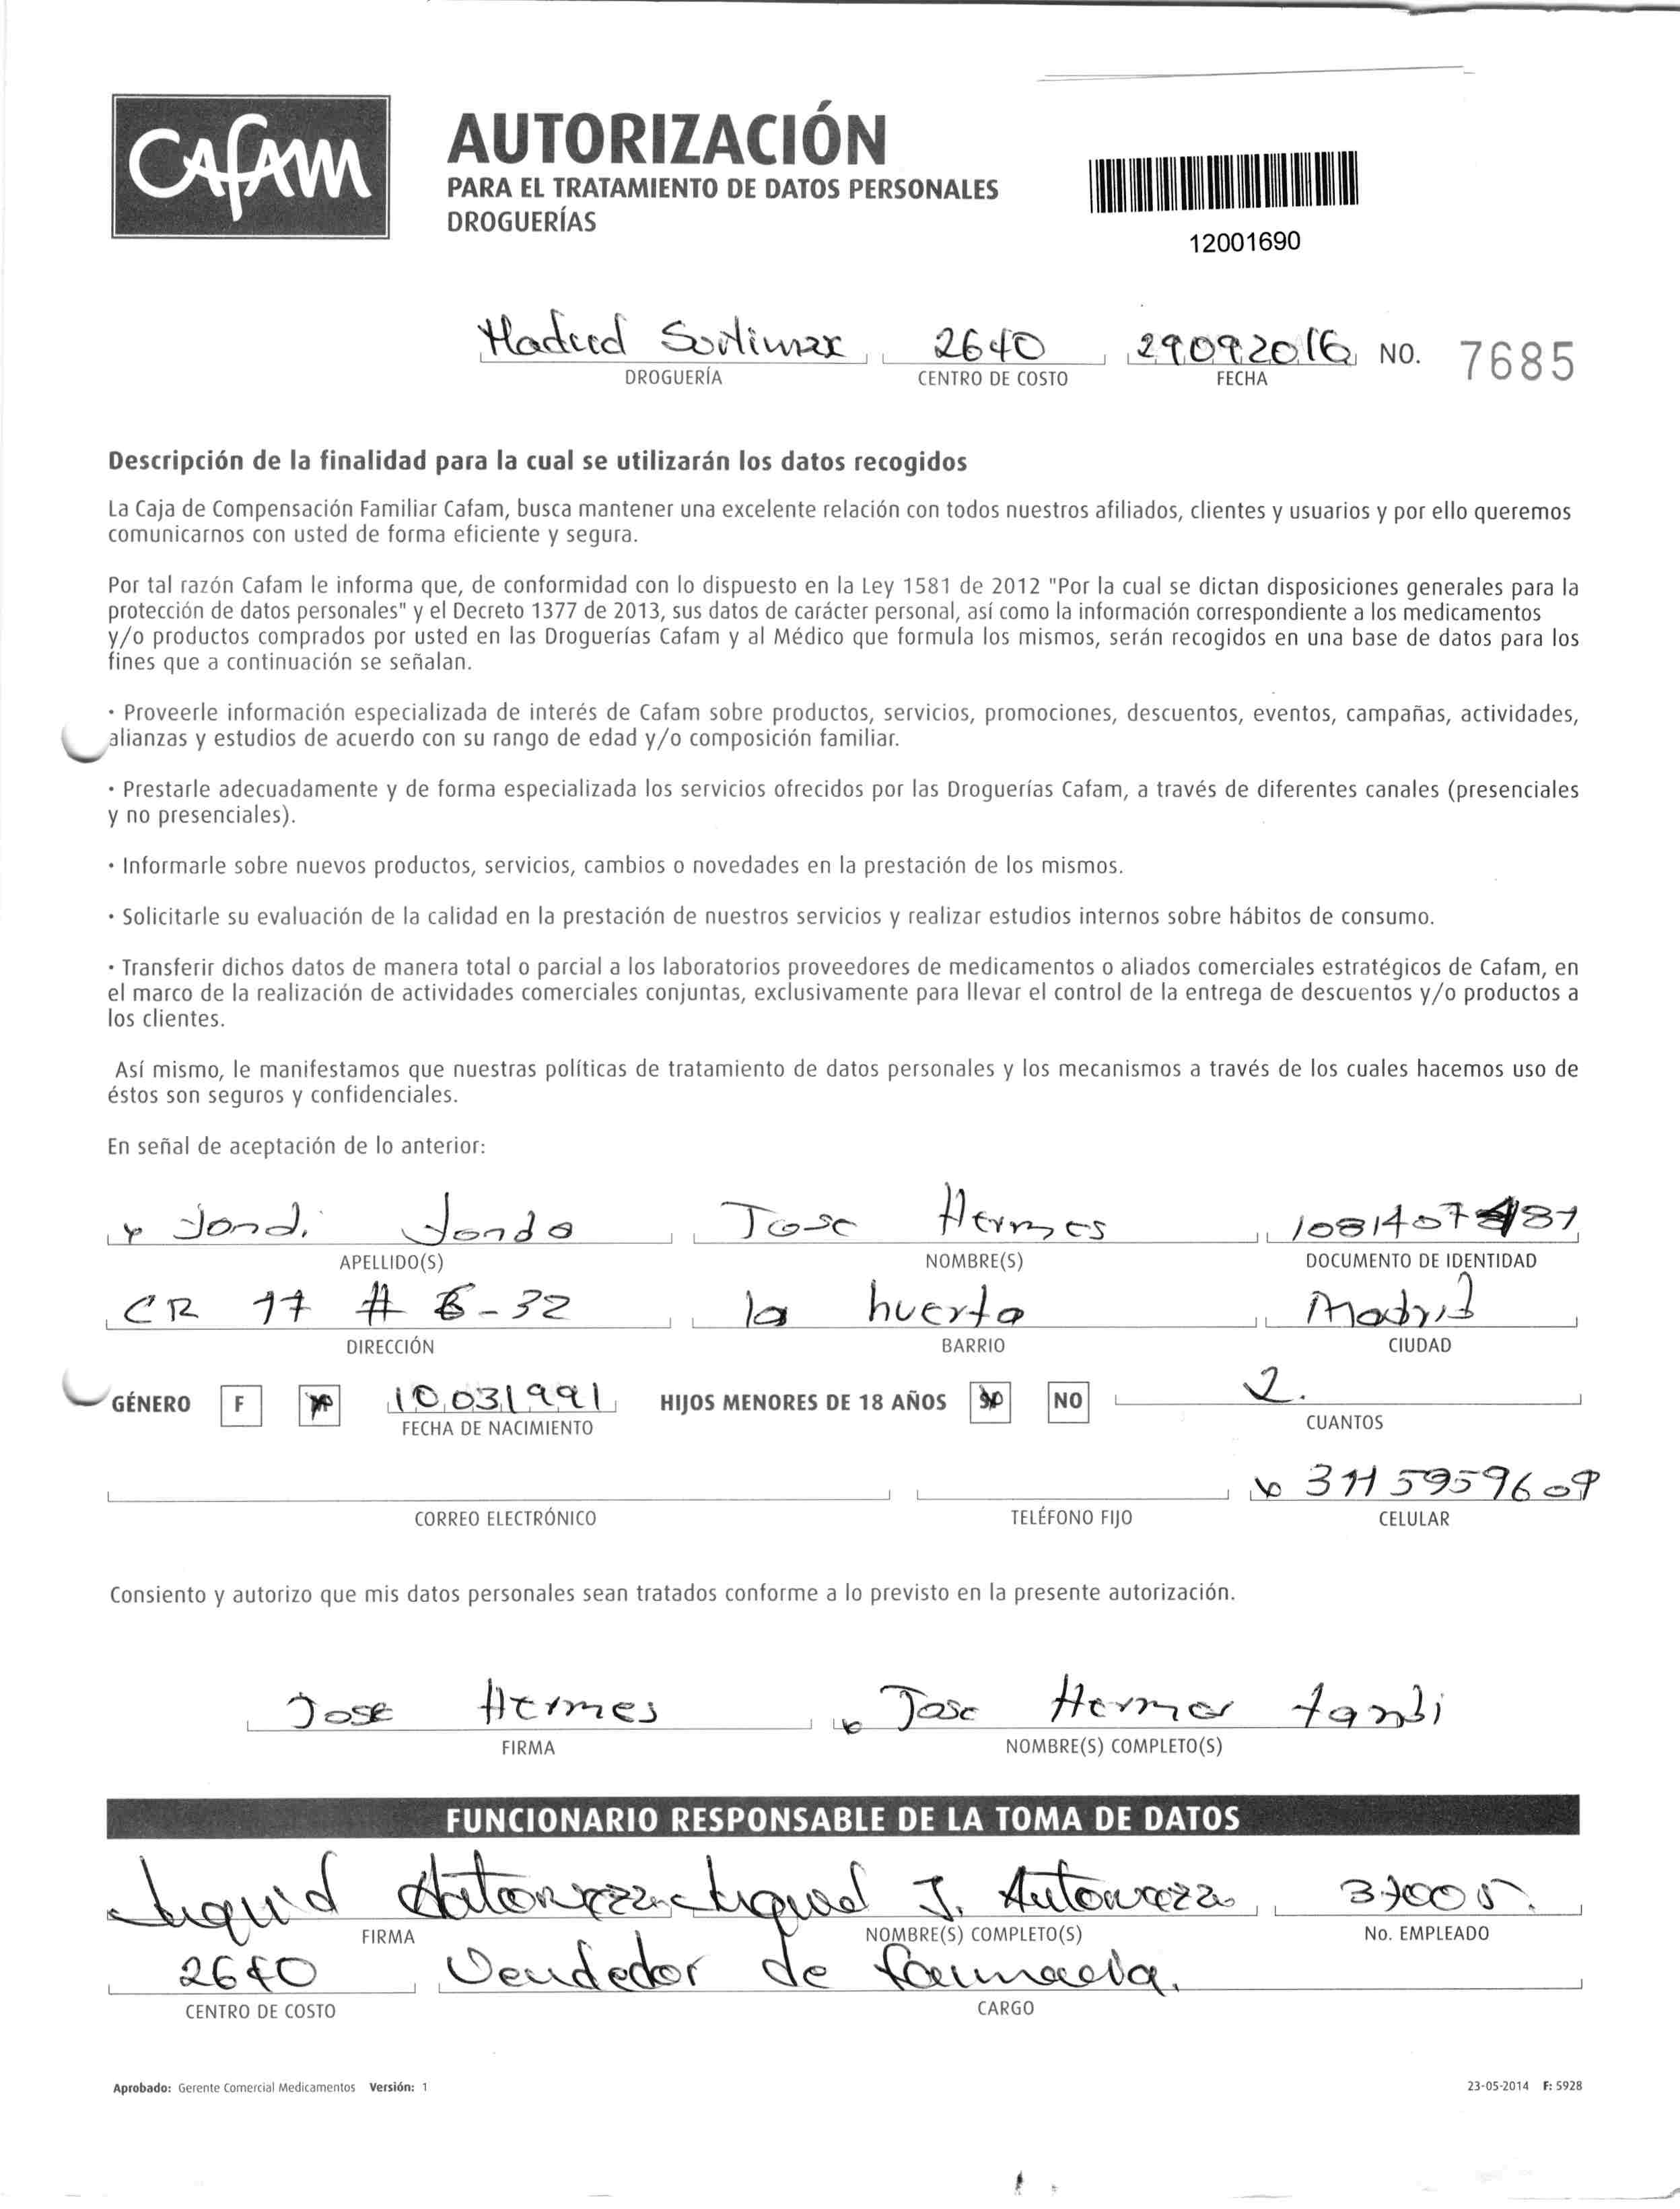 CAFAM
AUTORIZACIÓN
PARA EL TRATAMIENTO DE DATOS PERSONALES
DROGUERÍAS
12001690
Madrid 2640 29092016 NO. 7685
DROGUERÍA CENTRO DE COSTO FECHA
Descripción de la finalidad para la cual se utilizarán los datos recogidos
La Caja de Compensación Familiar Cafam, busca mantener una excelente relación con todos nuestros afiliados, clientes y usuarios y por ello queremos
comunicarnos con usted de forma eficiente y segura.
Por tal razón Cafam le informa que, de conformidad con lo dispuesto en la Ley 1581 de 2012 "Por la cual se dictan disposiciones generales para la
protección de datos personales" y el Decreto 1377 de 2013, sus datos de carácter personal, así como la información correspondiente a los medicamentos
y/o productos comprados por usted en las Droguerías Cafam y al Médico que formula los mismos, serán recogidos en una base de datos para los
fines que a continuación se señalan.
· Proveerle información especializada de interés de Cafam sobre productos, servicios, promociones, descuentos, eventos, campañas, actividades,
alianzas y estudios de acuerdo con su rango de edad y/o composición familiar.
· Prestarle adecuadamente y de forma especializada los servicios ofrecidos por las Droguerías Cafam, a través de diferentes canales (presenciales
y no presenciales).
· Informarle sobre nuevos productos, servicios, cambios o novedades en la prestación de los mismos.
· Solicitarle su evaluación de la calidad en la prestación de nuestros servicios y realizar estudios internos sobre hábitos de consumo.
· Transferir dichos datos de manera total o parcial a los laboratorios proveedores de medicamentos o aliados comerciales estratégicos de Cafam, en
el marco de la realización de actividades comerciales conjuntas, exclusivamente para llevar el control de la entrega de descuentos y/o productos a
los clientes.
Así mismo, le manifestamos que nuestras políticas de tratamiento de datos personales y los mecanismos a través de los cuales hacemos uso de
éstos son seguros y confidenciales.
En señal de aceptación de lo anterior:
Jose Hermes
APELLIDO(S) NOMBRE(S) DOCUMENTO DE IDENTIDAD
CR 17 # 6-32 la huerta Madrid
DIRECCIÓN BARRIO CIUDAD
GÉNERO F 10031991 HIJOS MENORES DE 18 AÑOS NO 2.
FECHA DE NACIMIENTO CUANTOS
311 5959609
CORREO ELECTRÓNICO TELÉFONO FIJO CELULAR
Consiento y autorizo que mis datos personales sean tratados conforme a lo previsto en la presente autorización.
Jose Hermes Jose
FIRMA NOMBRE(S) COMPLETO(S)
FUNCIONARIO RESPONSABLE DE LA TOMA DE DATOS
J. 37005
FIRMA NOMBRE(S) COMPLETO(S) No. EMPLEADO
2640 Vendedor de farmacia.
CENTRO DE COSTO CARGO
Aprobado: Gerente Comercial Medicamentos Versión: 1 23-05-2014 F: 5928